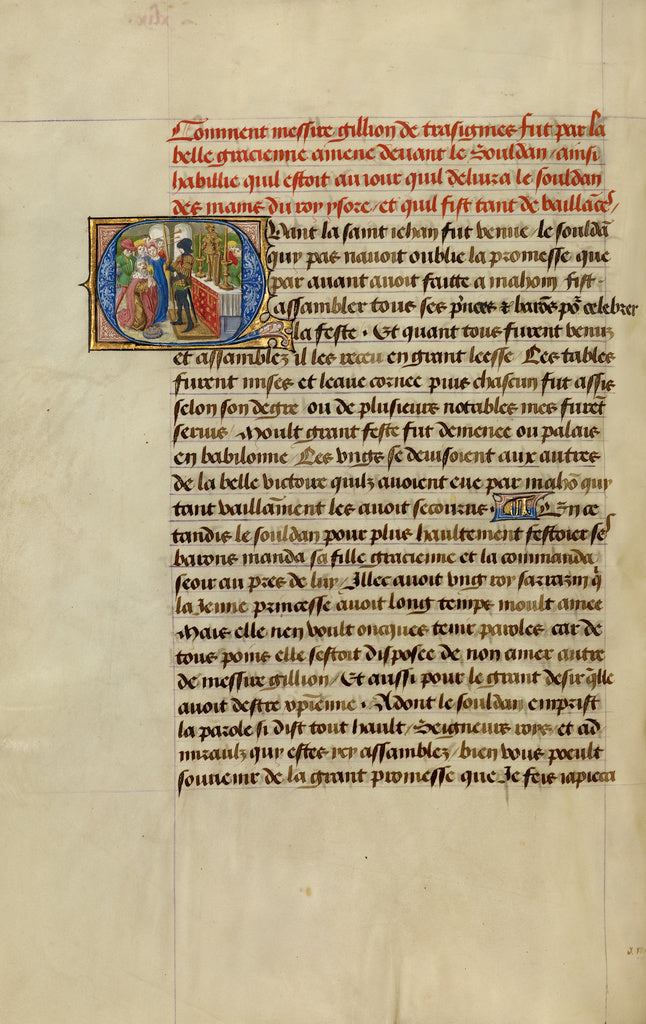 Comment messire gillion de trasignies fut par la
belle gracienne amene deuant le Souldan / ainsi
habillie quil estoit au iour quil deliura le souldan
des mains du roy ysore / et quil fist tant de vaillāces /
Quant la saint iehan fut venue / le souldā
quy pas nauoit oublie la promesse que
par auant auoit faitte a mahom / fist
assambler tous ses pⁿces & barōs po' celebrer
la feste . Et quant tous furent venus
et assamblez il les receu en grant leesse Les tables
furent mises et leaue cornee puis chascun fut assis
selon son degre ou de plusieurs notables mes furēt
seruis / Moult grant feste fut demenee ou palais
en babilonne / Les vngs se deuisoient aux autres
de la belle victoire quilz auoient eue par mahō quy
tant vaillāment les auoit secourus . En ce
tandis le souldan pour plus haultement festoier ses
barons manda sa fille gracienne et la commanda
seoir au pres de luy / Illec auoit vng roy sarrazin q̄
la Jenne princesse auoit long temps moult amee
Mais elle nen voult oncques tenir paroles car de
tous poins elle sestoit disposee de non amer autre
de messire gillion / Et aussi pour le grant desir q̄lle
auoit destre xp̄ienne . Adont le souldan emprist
la parole si dist tout hault / Seigneurs roys / et ad
miraulz quy estes icy assamblez / bien vous poeult
souuenir de la grant promesse que Je feis iapieca